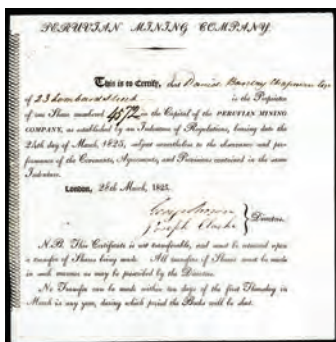 PERUVIAN MINING COMPANY.
This is to Certify, that David Barclay Chapman Esq
of 23 Lombard Street is the Proprietor
of one Share numbered 4572 in the Capital of the PERUVIAN MINING
COMPANY, as established by an Indenture of Regulations, bearing date the
24th day of March, 1825, subject nevertheless to the observance and per-
formance of the Covenants, Agreements, and Provisions contained in the same
Indenture.
London, 28th March, 1825.
George Brown
Joseph Clarke } Directors.
N.B. This Certificate is not transferable, and must be returned upon
a transfer of Shares being made. All transfers of Shares must be made
in such manner as may be prescribed by the Directors.
No Transfer can be made within ten days of the first Thursday in
March in any year, during which period the Books will be shut.